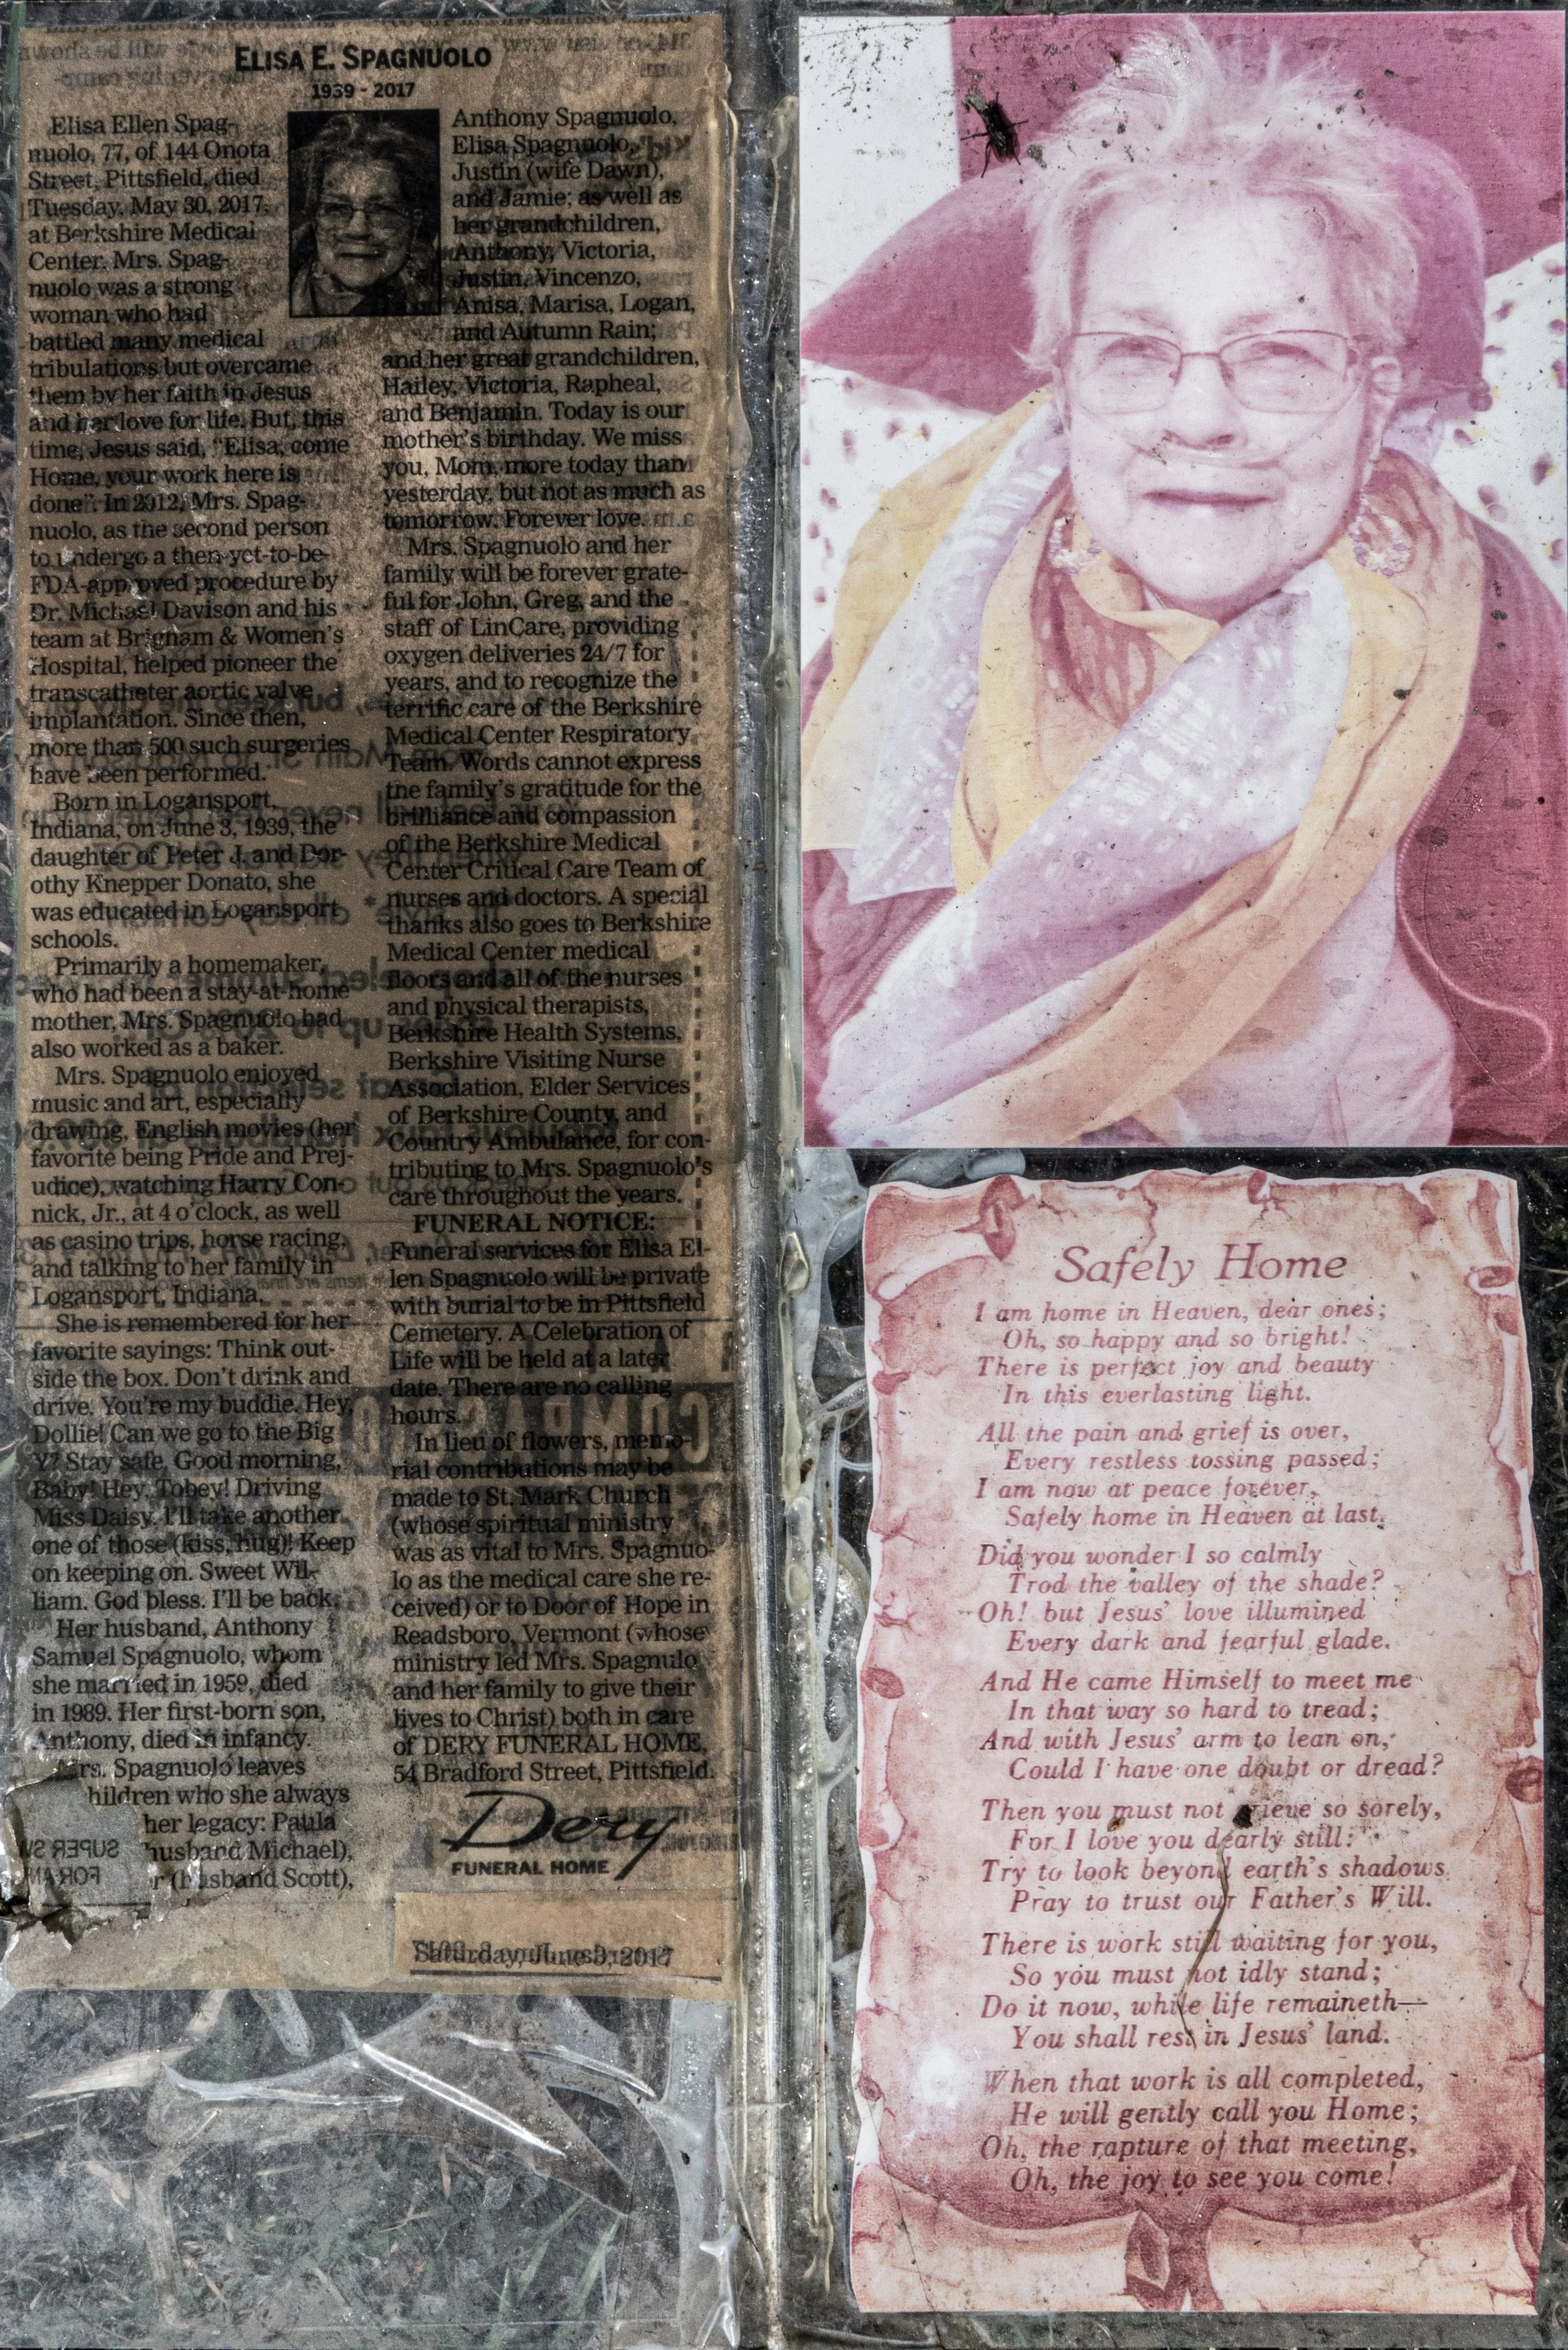 ELISA E. SPAGNUOLO
1939 - 2017
Elisa Ellen Spag-
nuolo, 77, of 144 Onota
Street, Pittsfield, died
Tuesday, May 30, 2017,
at Berkshire Medical
Center. Mrs. Spag-
nuolo was a strong
woman who had
battled many medical
tribulations but overcame
them by her faith in Jesus
and her love for life. But, this
time, Jesus said, “Elisa, come
Home, your work here is
done”. In 2012, Mrs. Spag-
nuolo, as the second person
to undergo a then-yet-to-be-
FDA-approved procedure by
Dr. Michael Davison and his
team at Brigham & Women's
Hospital, helped pioneer the
transcatheter aortic valve
implantation. Since then,
more than 500 such surgeries
have been performed.
Born in Logansport,
Indiana, on June 3, 1939, the
daughter of Peter J. and Dor-
othy Knepper Donato, she
was educated in Logansport
schools.
Primarily a homemaker,
who had been a stay-at-home
mother, Mrs. Spagnuolo had
also worked as a baker.
Mrs. Spagnuolo enjoyed
music and art, especially
drawing, English movies (her
favorite being Pride and Prej-
udice), watching Harry Con-
nick, Jr., at 4 o'clock, as well
as casino trips, horse racing,
and talking to her family in
Logansport, Indiana.
She is remembered for her
favorite sayings: Think out-
side the box. Don't drink and
drive. You're my buddie. Hey,
Dollie! Can we go to the Big
Y? Stay safe. Good morning,
Baby! Hey, Tobey! Driving
Miss Daisy. I'll take another
one of those (kiss, hug)! Keep
on keeping on. Sweet Wil-
liam. God bless. I'll be back.
Her husband, Anthony
Samuel Spagnuolo, whom
she married in 1959, died
in 1989. Her first-born son,
Anthony, died in infancy.
Mrs. Spagnuolo leaves
children who she always
her legacy: Paula
husband Michael),
(husband Scott),
Anthony Spagnuolo,
Elisa Spagnuolo,
Justin (wife Dawn),
and Jamie; as well as
her grandchildren,
Anthony, Victoria,
Justin, Vincenzo,
Anisa, Marisa, Logan,
and Autumn Rain;
and her great grandchildren,
Hailey, Victoria, Rapheal,
and Benjamin. Today is our
mother's birthday. We miss
you, Mom, more today than
yesterday, but not as much as
tomorrow. Forever love.
Mrs. Spagnuolo and her
family will be forever grate-
ful for John, Greg, and the
staff of LinCare, providing
oxygen deliveries 24/7 for
years, and to recognize the
terrific care of the Berkshire
Medical Center Respiratory
Team. Words cannot express
the family's gratitude for the
brilliance and compassion
of the Berkshire Medical
Center Critical Care Team of
nurses and doctors. A special
thanks also goes to Berkshire
Medical Center medical
floors and all of the nurses
and physical therapists,
Berkshire Health Systems,
Berkshire Visiting Nurse
Association, Elder Services
of Berkshire County, and
Country Ambulance, for con-
tributing to Mrs. Spagnuolo's
care throughout the years.
FUNERAL NOTICE:
Funeral services for Elisa El-
len Spagnuolo will be private
with burial to be in Pittsfield
Cemetery. A Celebration of
Life will be held at a later
date. There are no calling
hours.
In lieu of flowers, memo-
rial contributions may be
made to St. Mark Church
(whose spiritual ministry
was as vital to Mrs. Spagnuo-
lo as the medical care she re-
ceived) or to Door of Hope in
Readsboro, Vermont (whose
ministry led Mrs. Spagnulo
and her family to give their
lives to Christ) both in care
of DERY FUNERAL HOME,
54 Bradford Street, Pittsfield.
Dery
FUNERAL HOME
Saturday, June 3, 2017
Safely Home
I am home in Heaven, dear ones;
Oh, so happy and so bright!
There is perfect joy and beauty
In this everlasting light.
All the pain and grief is over,
Every restless tossing passed;
I am now at peace forever,
Safely home in Heaven at last.
Did you wonder I so calmly
Trod the valley of the shade?
Oh! but Jesus' love illumined
Every dark and fearful glade.
And He came Himself to meet me
In that way so hard to tread;
And with Jesus' arm to lean on,
Could I have one doubt or dread?
Then you must not grieve so sorely,
For I love you dearly still:
Try to look beyond earth's shadows
Pray to trust our Father's Will.
There is work still waiting for you,
So you must not idly stand;
Do it now, while life remaineth—
You shall rest in Jesus' land.
When that work is all completed,
He will gently call you Home;
Oh, the rapture of that meeting,
Oh, the joy to see you come!